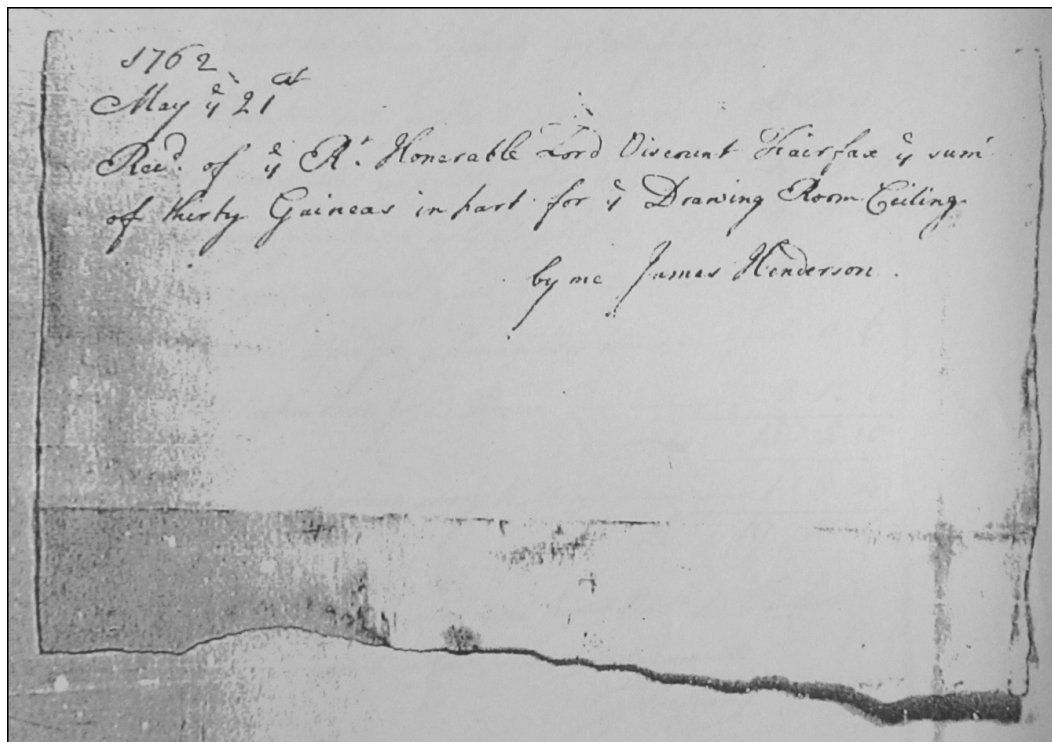 1762
May yᵉ 21ˢᵗ
Recᵈ. of yᵉ Rᵗ. Honerable Lord Viscount Fairfax yᵉ sum
of thirty Guineas in part for yᵉ Drawing Room Ceiling
by me James Henderson.